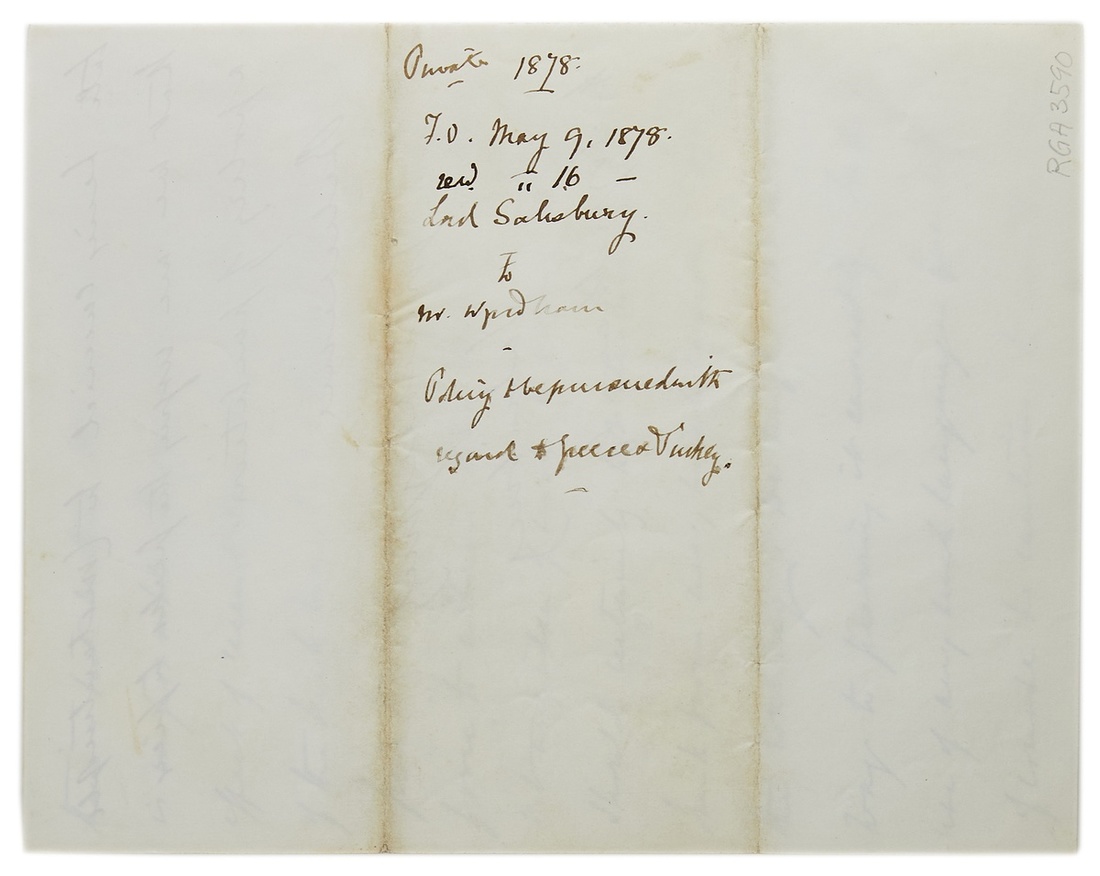 Private 1878.
F.O. May 9, 1878.
recd. " 16 –
Lord Salisbury.
to
Mr. Wyndham
–
Policy to be pursued with
regard to Greece & Turkey.
RGA 3590